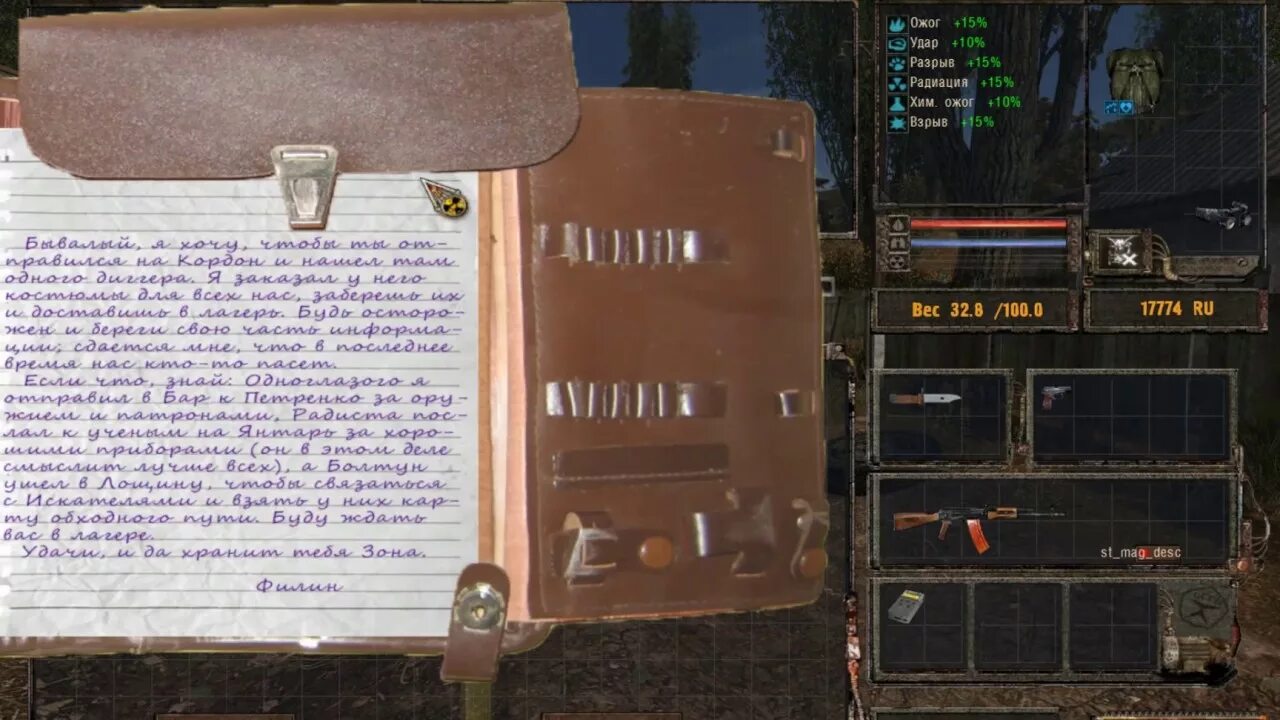 Бывалый, я хочу, чтобы ты от-
правился на Кордон и нашел там
одного диггера. Я заказал у него
костюмы для всех нас, заберешь их
и доставишь в лагерь. Будь осторо-
жен и береги свою часть информа-
ции; сдается мне, что в последнее
время нас кто-то пасет.
Если что, знай: Одноглазого я
отправил в Бар к Петренко за ору-
жием и патронами, Радиста пос-
лал к ученым на Янтарь за хоро-
шими приборами (он в этом деле
смыслит лучше всех), а Болтун
ушел в Лощину, чтобы связаться
с Искателями и взять у них кар-
ту обходного пути. Буду ждать
вас в лагере.
Удачи, и да хранит тебя Зона.
Филин
Ожог +15%
Удар +10%
Разрыв +15%
Радиация +15%
Хим. ожог +10%
Взрыв +15%
Вес 32.8 /100.0
17774 RU
st_mag_desc